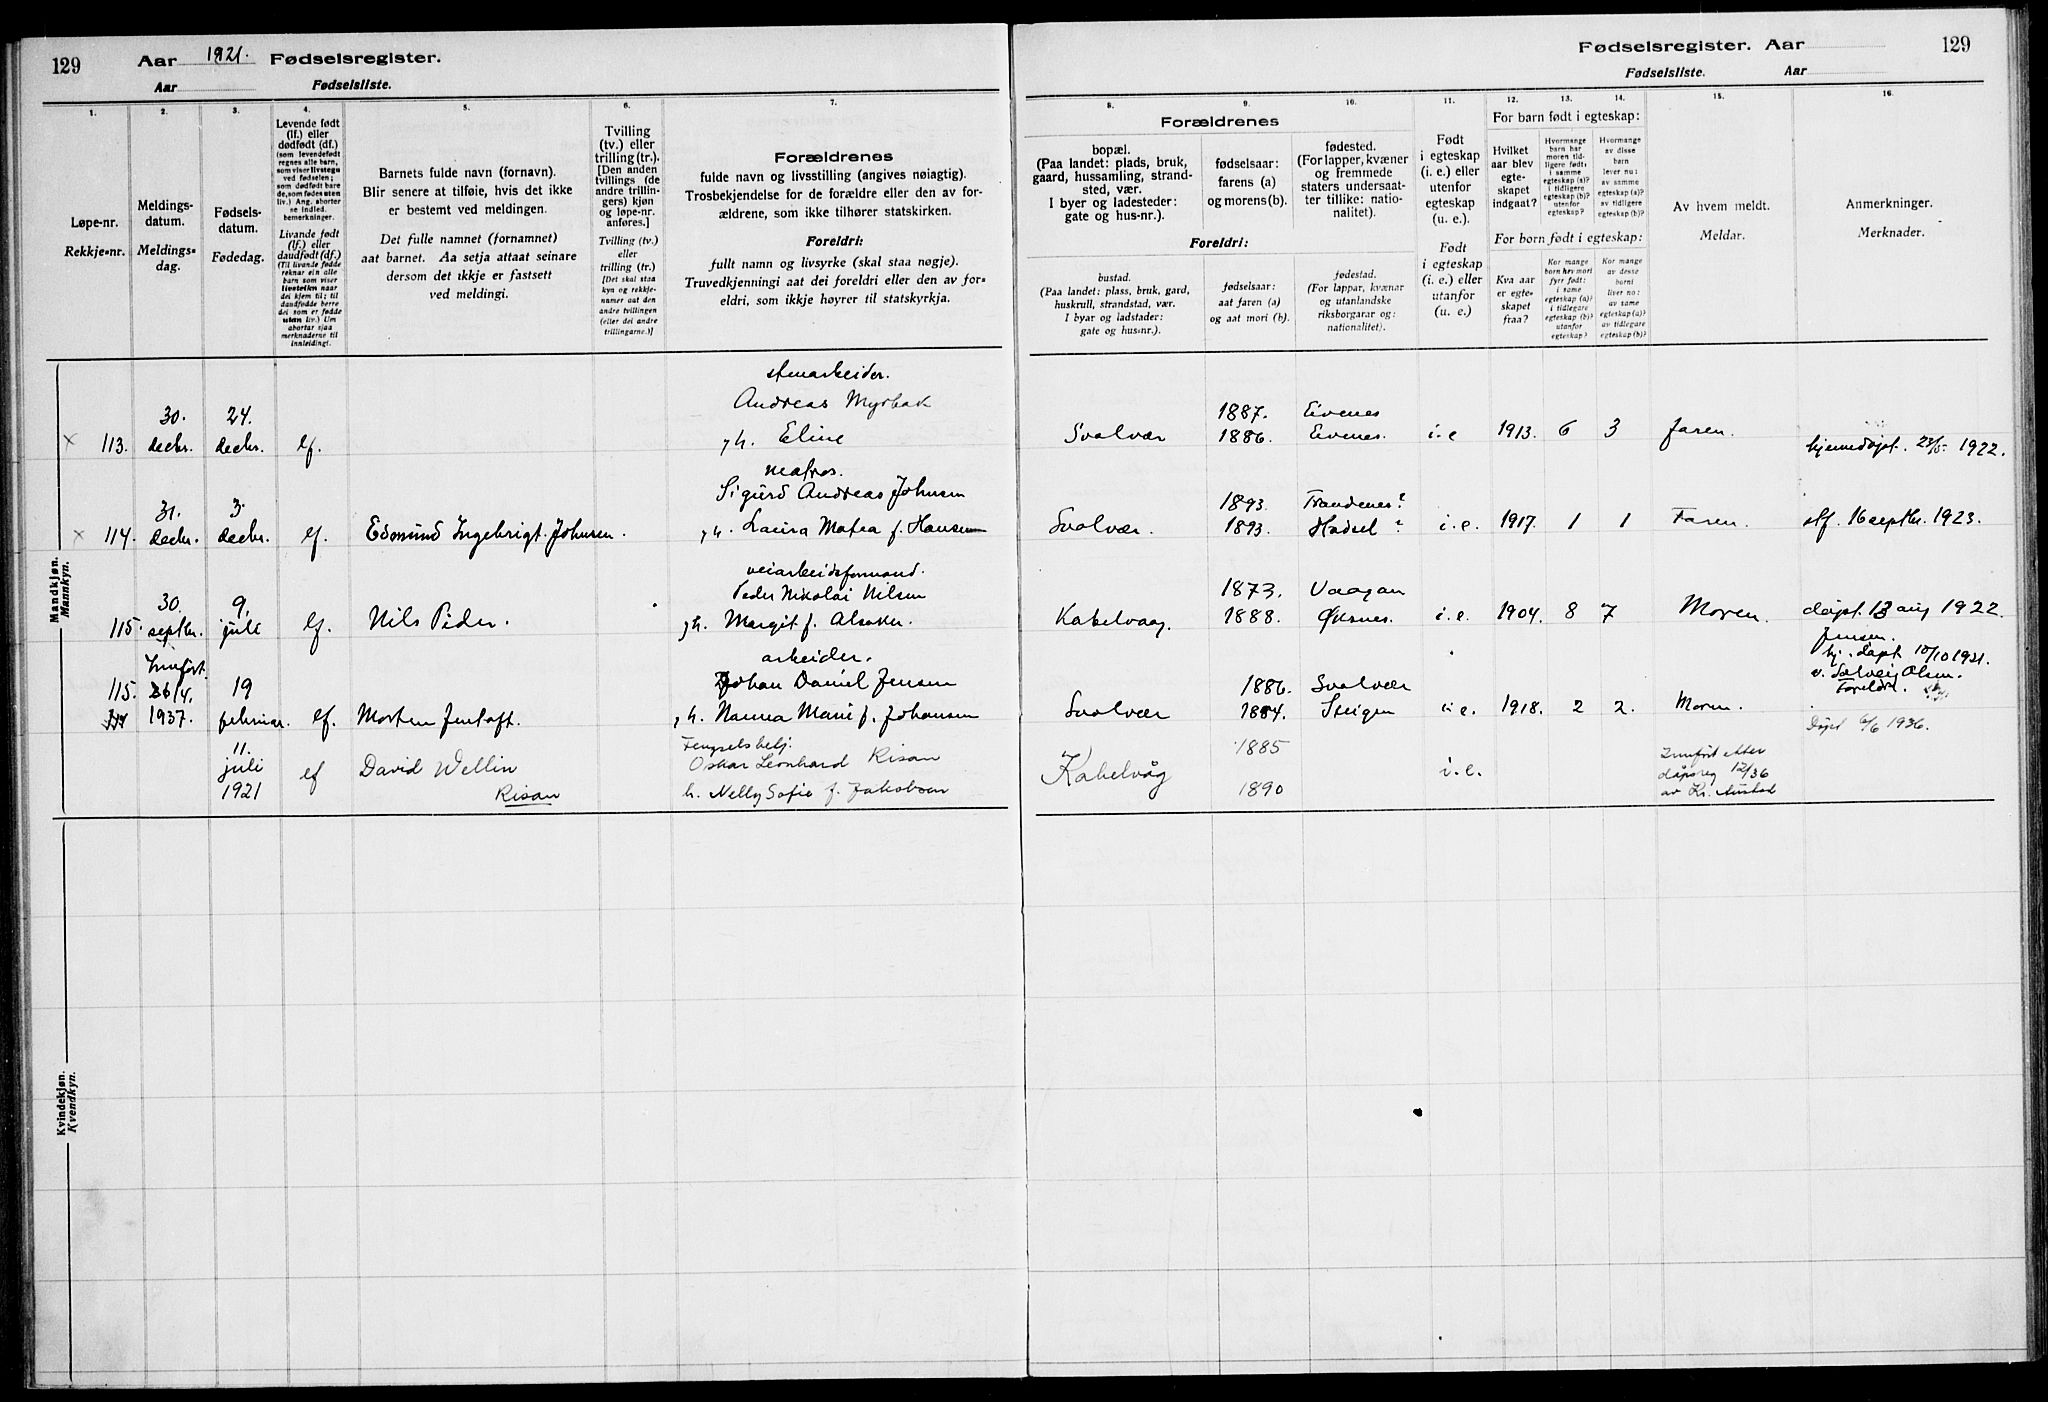 129
Aar 1921. Fødselsregister.
Aar Fødselsliste.
1. 2. 3. 4. 5. 6. 7.
Løpe-nr.
Rekkje-nr.
Meldings-
datum.
Meldings-
dag.
Fødsels-
datum.
Fødedag.
Levende født
(lf.) eller
dødfødt (df.)
(som levendefødt
regnes alle barn,
som viser livstegn
ved fødselen;
som dødfødt bare
de, som fødes uten
liv.) Ang. aborter
se indled.
bemerkninger.
Livande født
(lf.) eller
daudfødt (df.)
(Til livande fødde
reknar ein alle
barn som viser
livsteikn naar
dei kjem til; til
daudfødde berre
dei som er fødde
utan liv.) Um
abortar sjaa
merknaderne til
innleiding!.
Barnets fulde navn (fornavn).
Blir senere at tilføie, hvis det ikke
er bestemt ved meldingen.
Det fulle namnet (fornamnet)
aat barnet. Aa setja attaat seinare
dersom det ikkje er fastsett
ved meldingi.
Tvilling
(tv.) eller
trilling (tr.).
[Den anden
tvillings (de
andre trillin-
gers) kjøn
og løpe-nr.
anføres.]
Tvilling (tv.)
eller
trilling (tr.)
[Det skal staa
kyn og rekkje-
namer aat den
andre tvillingen
(eller dei andre
trillingarne.)]
Forældrenes
fulde navn og livsstilling (angives nøiagtig).
Trosbekjendelse for de forældre eller den av for-
ældrene, som ikke tilhører statskirken.
Foreldri:
fullt namn og livsyrke (skal staa nøgje).
Truvedkjenningi aat dei foreldri eller den av for-
eldri, som ikkje høyrer til statskyrkja.
Mandkjøn.
Mannkyn.
stenarbeider.
Andreas Myrbak
30. 24.
× 113. decbr. decbr. lf. g h. Eline
matros.
Sigurd Andreas Johnsen
31. 3.
× 114. decbr. decbr. lf. Edmund Ingebrigt Johnsen. g h. Laura Matea f. Hansen
veiarbeidsformand.
Peder Nikolai Nilsen
30. 9.
115. septbr. juli lf. Nils Peder. g h. Margit f.
arbeider.
Innført
Johan Daniel Jensen
115. 26/4. 19
1937. februar. lf. Morten Jentoft. g h. Nanna Marie f. Johansen
Fengselsbetj.
Oskar Leonhard Risan
11.
juli
1921 lf David Wellin
Risan h. Nelly Sofie f. Jakobsen
Kvindekjøn.
Kvendkyn.
Fødselsregister. Aar 129
Fødselsliste. Aar
8. 9. 10. 11. 12. 13. 14. 15. 16.
Forældrenes
bopæl.
(Paa landet: plads, bruk,
gaard, hussamling, strand-
sted, vær.
I byer og ladesteder:
gate og hus-nr.).
fødselsaar:
farens (a)
og morens (b).
fødested.
(For lapper, kvæner
og fremmede
staters undersaat-
ter tillike: natio-
nalitet).
Foreldri:
bustad.
(Paa landet: plass, bruk, gard,
huskrull, strandstad, vær.
I byar og ladstader:
gate og hus-nr.).
fødselsaar:
aat faren (a)
og aat mori (b).
fødestad.
(For lappar, kvænar
og utanlandske
riksborgarar og:
nationalitet).
Født
i egteskap
(i. e.) eller
utenfor
egteskap
(u. e.).
Født
i egteskap
(i. e.) eller
utanfor
(u. e.)
For barn født i egteskap:
Hvilket
aar blev
egte-
skapet
indgaat?
Hvormange
barn har
moren tid-
ligere født:
i samme
egteskap (a)?
i tidligere
egteskap (b)?
utenfor
egteskap?
Hvormange
av disse
barn
lever nu:
av samme
egteskap (a)?
av tidligere
egteskap (b)?
For born født i egteskap:
Kva aar
er egte-
skapet
fraa?
Kor mange
born hev mori
fyrr født:
i same
egteskap (a)?
i tidlegare
egteskap (b)?
utanfor
egteskap?
Kor mange
av desse
borni
liver no:
av same
egteskap (a)?
av tidlegare
egteskap (b)?
Av hvem meldt.
Meldar.
Anmerkninger.
Merknader.
1887. Eivenes
Svolvær 1886. Evenes. i. e 1913. 6 3 faren. hjemmedøpt. 23/5 1922.
1893. Trandenes?
Svolvær. 1893. Hadsel? i. e. 1917. 1 1 Faren. stf. 16 septbr. 1923.
1873. Vaagan
Kabelvaag. 1888. Øksnes. i. e. 1904. 8 7 Moren. døpt. 13 aug 1922
Jensen.
hj. døpt 10/10 1921.
v. Solveig Olsen.
Foreldre.
1886. Svolvær
Svolvær 1884. Steigen i. e. 1918. 2 2. Moren.
Døpt 6/6 1936.
1885
Kabelvåg i. e.
1890
Innført etter
dåpsreg 12/36
av Kr. Austad